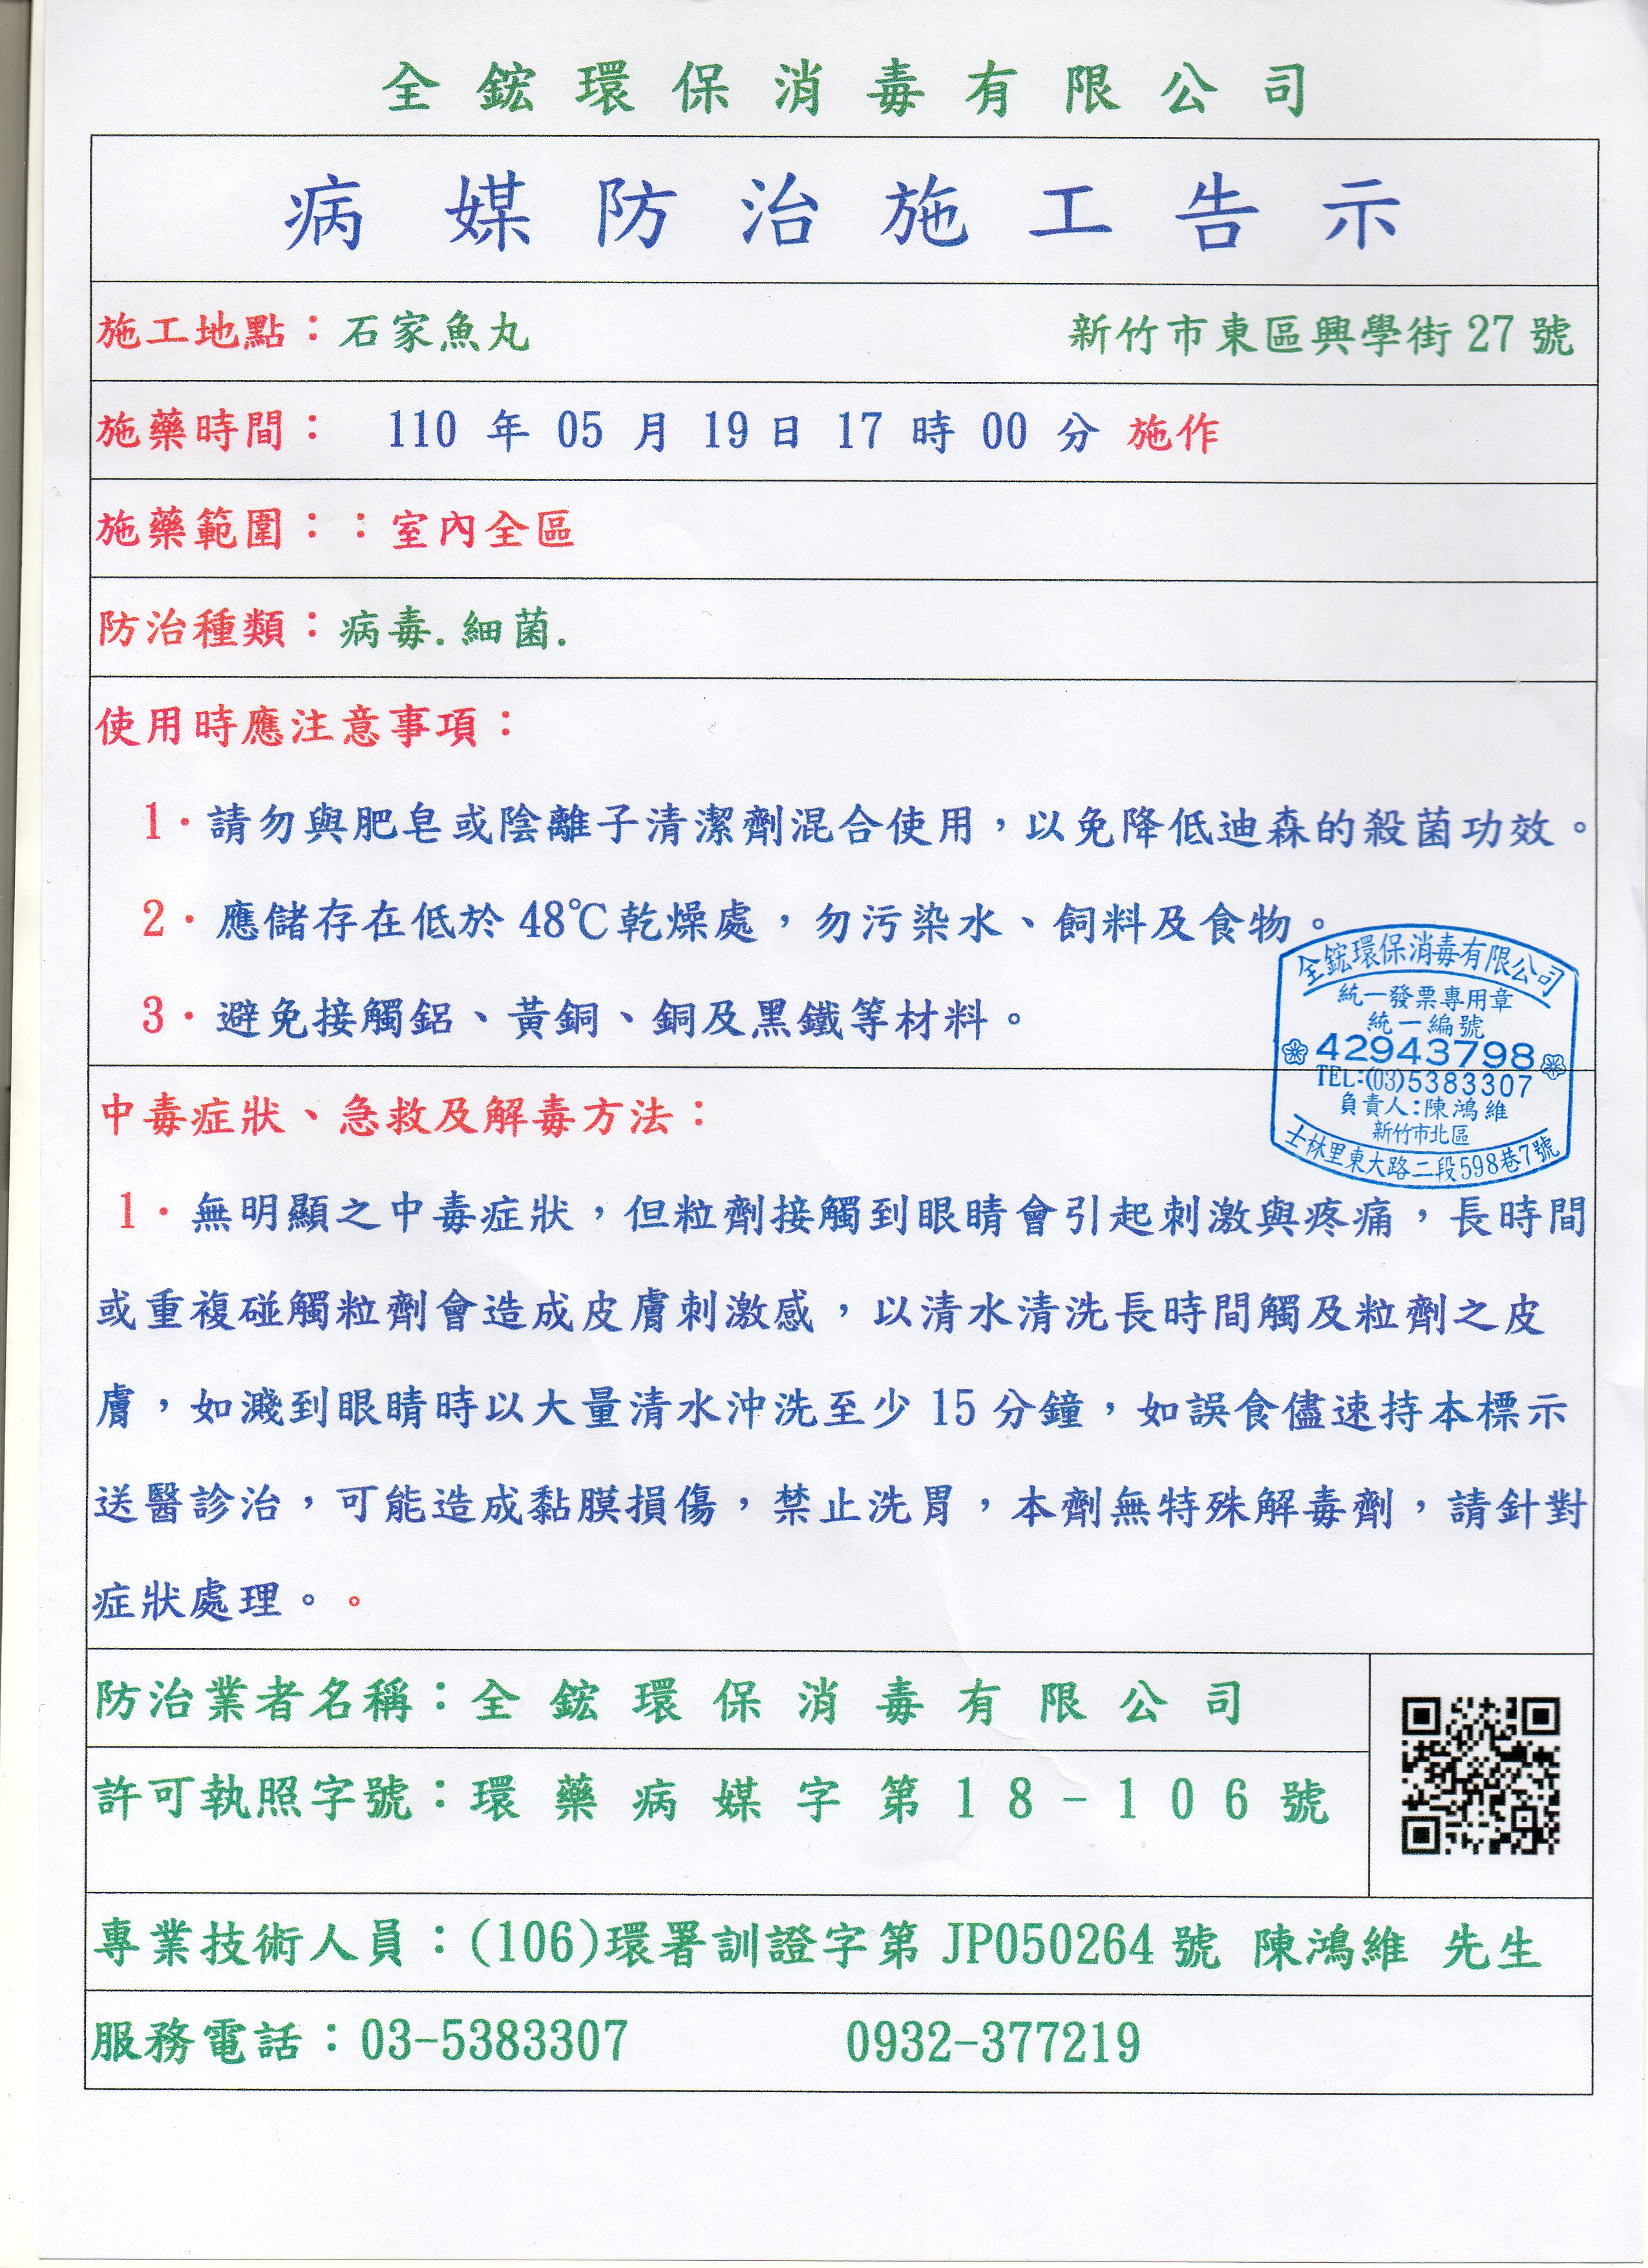 全鋐環保消毒有限公司
病媒防治施工告示
施工地點：石家魚丸 新竹市東區興學街 27 號
施藥時間： 110 年 05 月 19 日 17 時 00 分 施作
施藥範圍：：室內全區
防治種類：病毒.細菌.
使用時應注意事項：
1·請勿與肥皂或陰離子清潔劑混合使用，以免降低迪森的殺菌功效。
2·應儲存在低於 48℃乾燥處，勿污染水、飼料及食物。
3·避免接觸鋁、黃銅、銅及黑鐵等材料。
全鋐環保消毒有限公司
統一發票專用章
統一編號
42943798
TEL:(03)5383307
負責人:陳鴻維
新竹市北區
士林里東大路二段598巷7號
中毒症狀、急救及解毒方法：
1·無明顯之中毒症狀，但粒劑接觸到眼睛會引起刺激與疼痛，長時間
或重複碰觸粒劑會造成皮膚刺激感，以清水清洗長時間觸及粒劑之皮
膚，如濺到眼睛時以大量清水沖洗至少 15 分鐘，如誤食儘速持本標示
送醫診治，可能造成黏膜損傷，禁止洗胃，本劑無特殊解毒劑，請針對
症狀處理。。
防治業者名稱：全鋐環保消毒有限公司
許可執照字號：環藥病媒字第18-106號
專業技術人員：(106)環署訓證字第 JP050264 號 陳鴻維 先生
服務電話：03-5383307 0932-377219